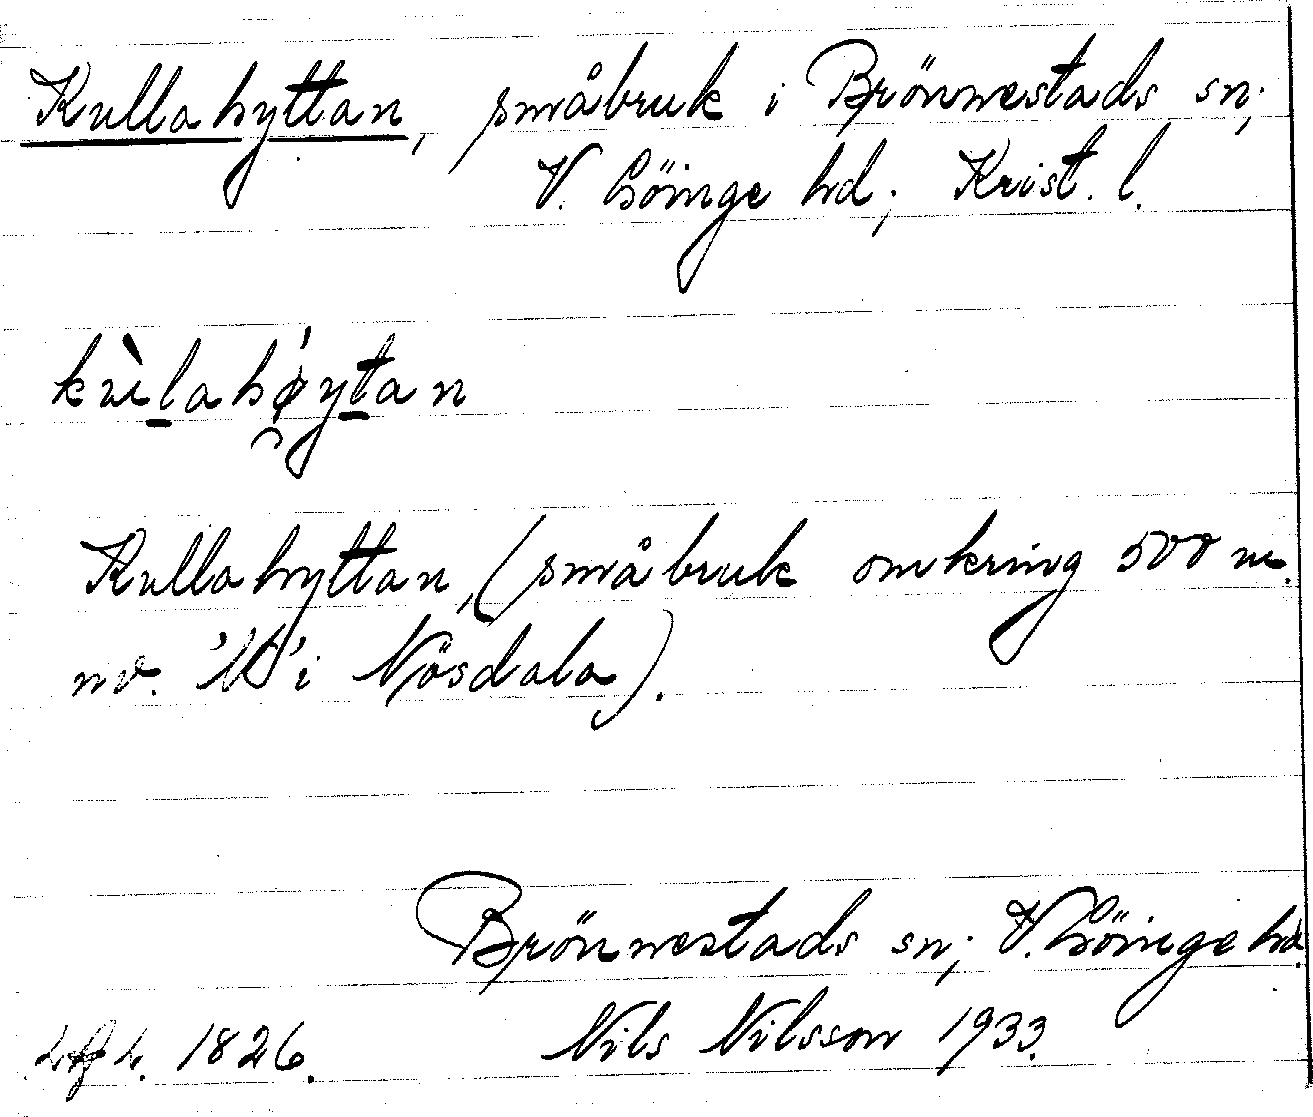 Kullahyttan, småbruk i Brönnestads sn;
V. Göinge hd; Krist. l.
kùlahǿytan
Kullahyttan, (småbruk omkring 500 m.
nv. 'M' i Nösdala).
Brönnestads sn; V. Göinge hd.
1826. Nils Nilsson 1933.